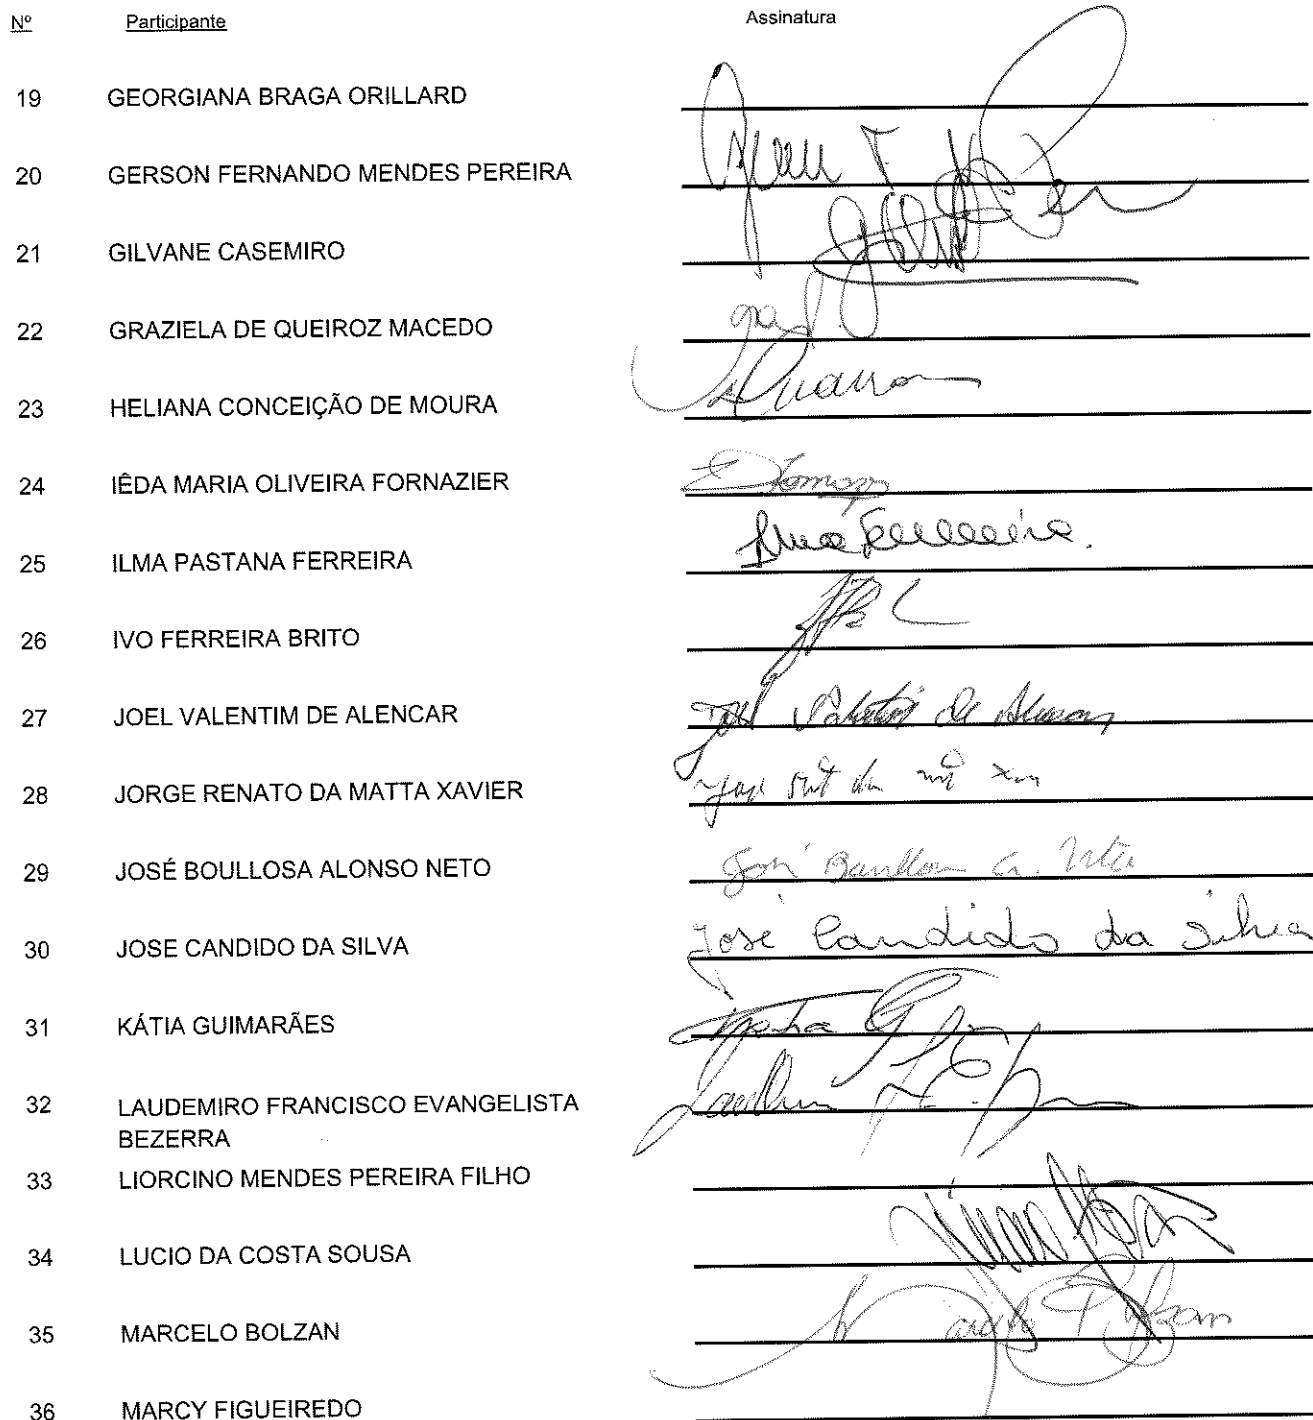 Nº Participante Assinatura
19 GEORGIANA BRAGA ORILLARD
20 GERSON FERNANDO MENDES PEREIRA
21 GILVANE CASEMIRO
22 GRAZIELA DE QUEIROZ MACEDO
23 HELIANA CONCEIÇÃO DE MOURA
24 IÊDA MARIA OLIVEIRA FORNAZIER
25 ILMA PASTANA FERREIRA Ilma Ferreira.
26 IVO FERREIRA BRITO
27 JOEL VALENTIM DE ALENCAR Joel Valentim de Alencar
28 JORGE RENATO DA MATTA XAVIER
29 JOSÉ BOULLOSA ALONSO NETO
30 JOSE CANDIDO DA SILVA José Candido da Silva
31 KÁTIA GUIMARÃES
32 LAUDEMIRO FRANCISCO EVANGELISTA
BEZERRA
33 LIORCINO MENDES PEREIRA FILHO
34 LUCIO DA COSTA SOUSA
35 MARCELO BOLZAN
36 MARCY FIGUEIREDO